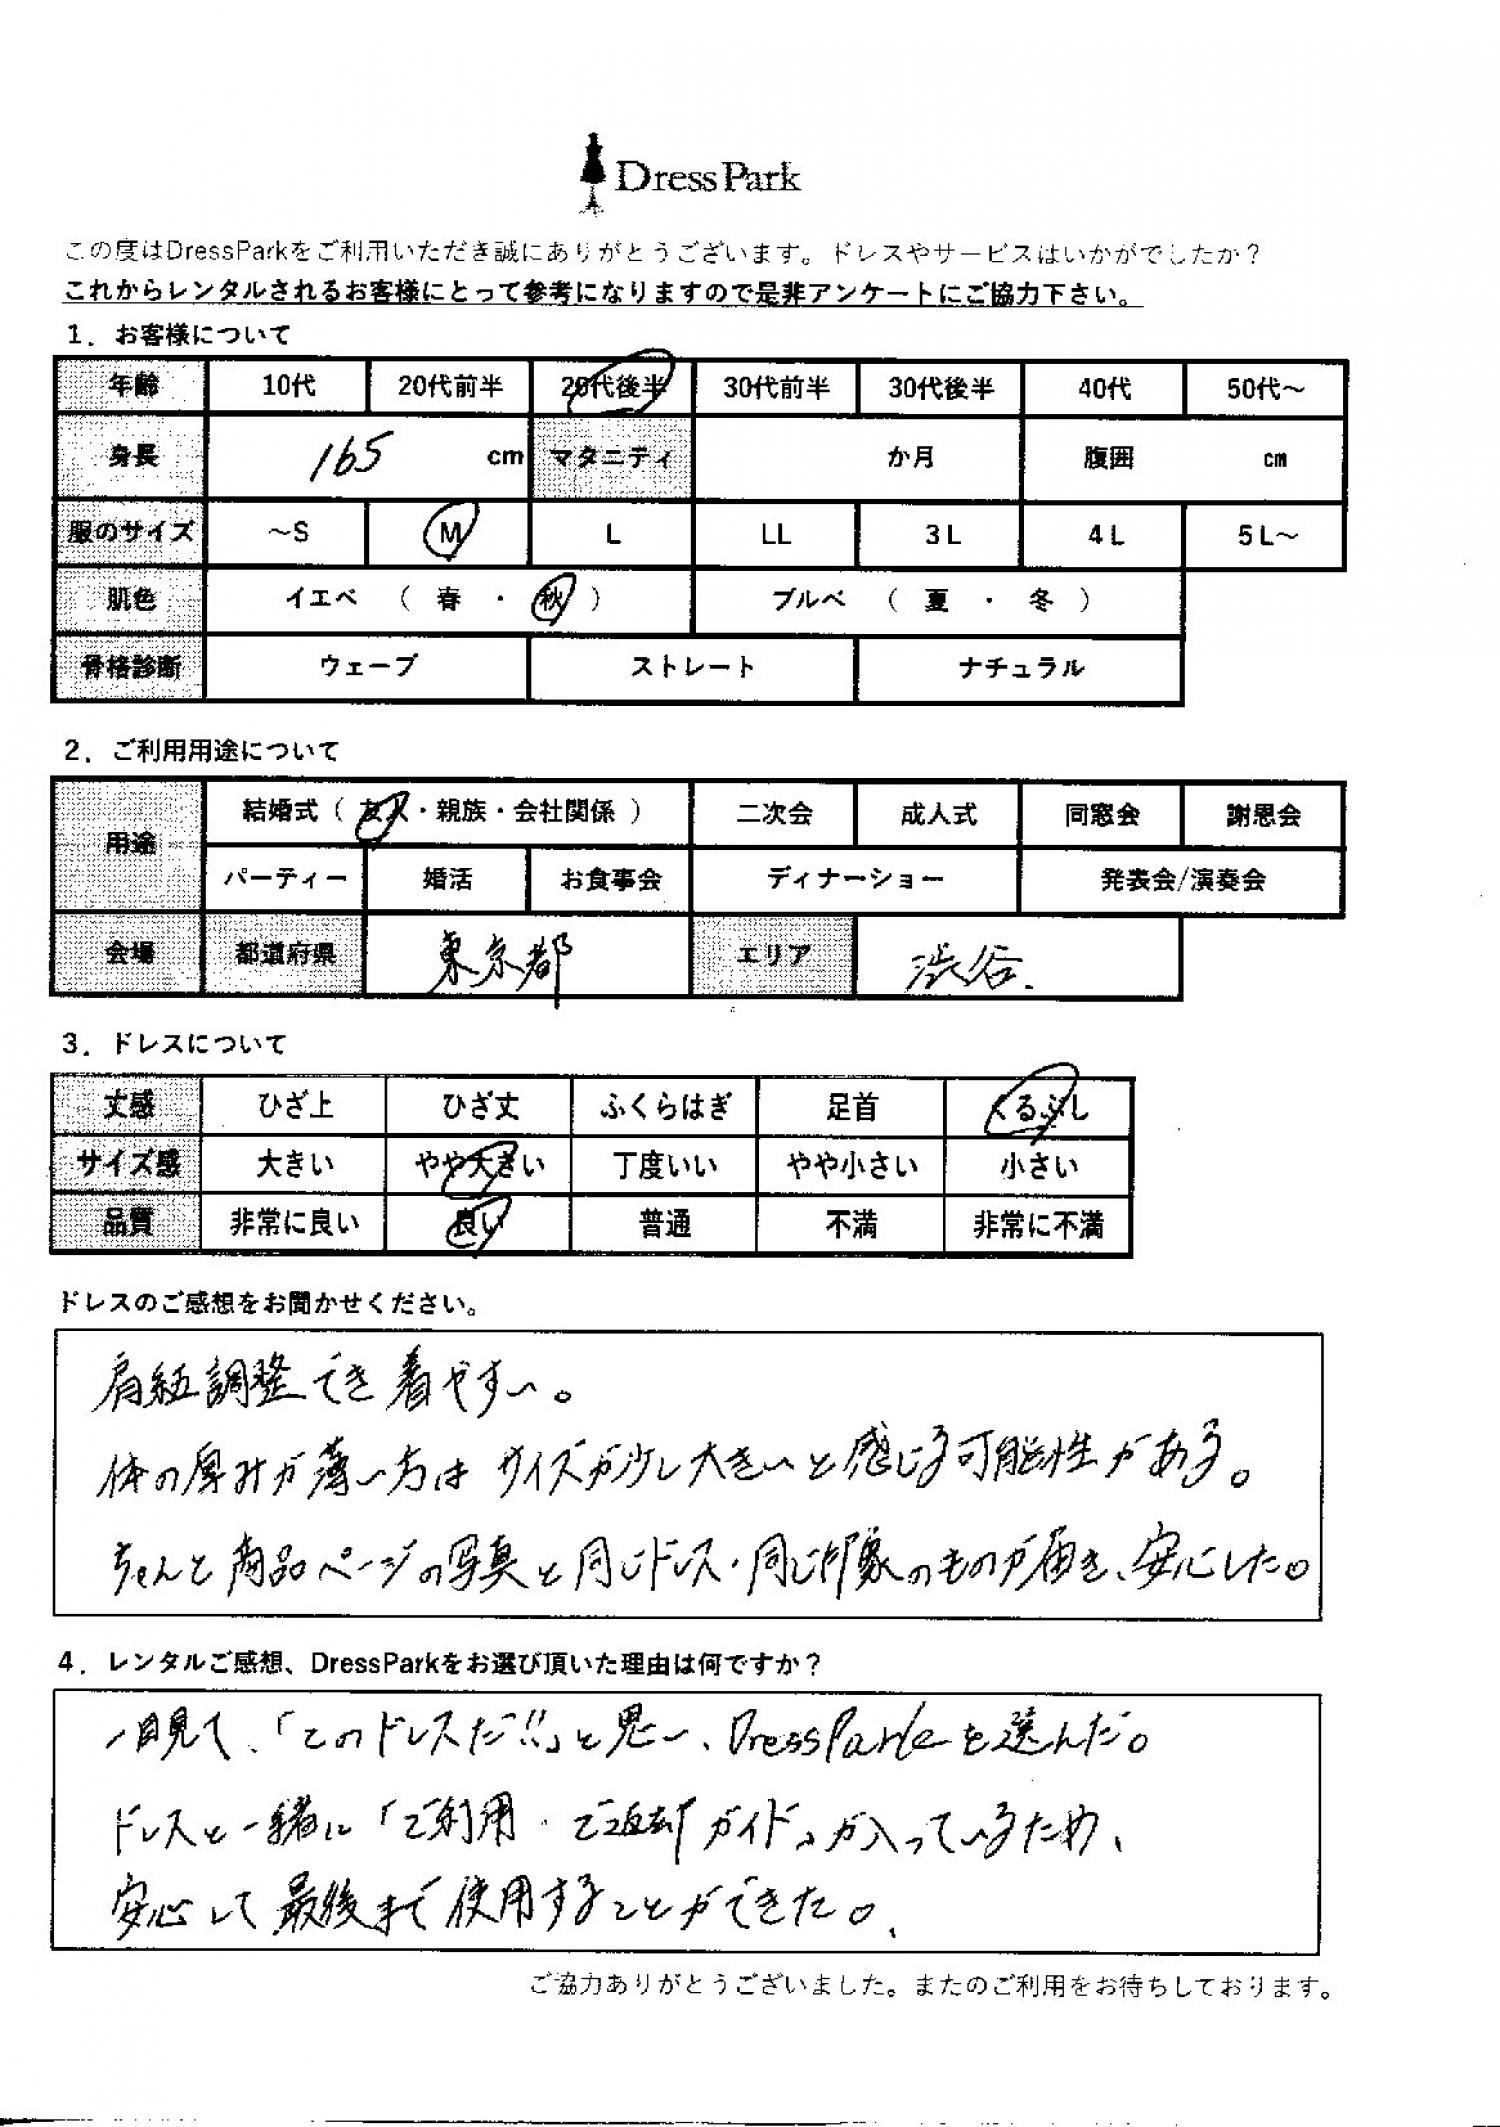 DressPark
この度はDressParkをご利用いただき誠にありがとうございます。ドレスやサービスはいかがでしたか？
これからレンタルされるお客様にとって参考になりますので是非アンケートにご協力下さい。
1．お客様について
年齢 10代 20代前半 20代後半 30代前半 30代後半 40代 50代～
身長 165 cm マタニティ か月 腹囲 cm
服のサイズ ～S M L LL 3L 4L 5L～
肌色 イエベ （ 春 ・ 秋 ） ブルベ （ 夏 ・ 冬 ）
骨格診断 ウェーブ ストレート ナチュラル
2．ご利用用途について
用途 結婚式（ 友人・親族・会社関係 ） 二次会 成人式 同窓会 謝恩会
パーティー 婚活 お食事会 ディナーショー 発表会/演奏会
会場 都道府県 東京都 エリア 渋谷.
3．ドレスについて
丈感 ひざ上 ひざ丈 ふくらはぎ 足首 くるぶし
サイズ感 大きい やや大きい 丁度いい やや小さい 小さい
品質 非常に良い 良い 普通 不満 非常に不満
ドレスのご感想をお聞かせください。
肩紐調整でき着やすい。
体の厚みが薄い方はサイズが少し大きいと感じる可能性がある。
ちゃんと商品ページの写真と同じドレス・同じ印象のものが届き、安心した。
4．レンタルご感想、DressParkをお選び頂いた理由は何ですか？
一目見て、「このドレスだ!!」と思い、DressParkを選んだ。
ドレスと一緒に「ご利用・ご返却ガイド」が入っているため、
安心して最後まで使用することができた。
ご協力ありがとうございました。またのご利用をお待ちしております。